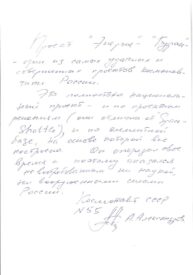 Проект "Энергия" "Буран"
- один из самых удачных и
совершенных проектов космонав-
тики России.
Это полностью национал-
ный проект - и по проектным
решениям (они отличны от "Space-
Shuttle"), и по элементной
базе, на основе которой все
построено. Он опередил свое
время - и поэтому оказался
невостребован ни наукой,
ни вооруженными силами
России.
Космонавт СССР
№55
А. Александров